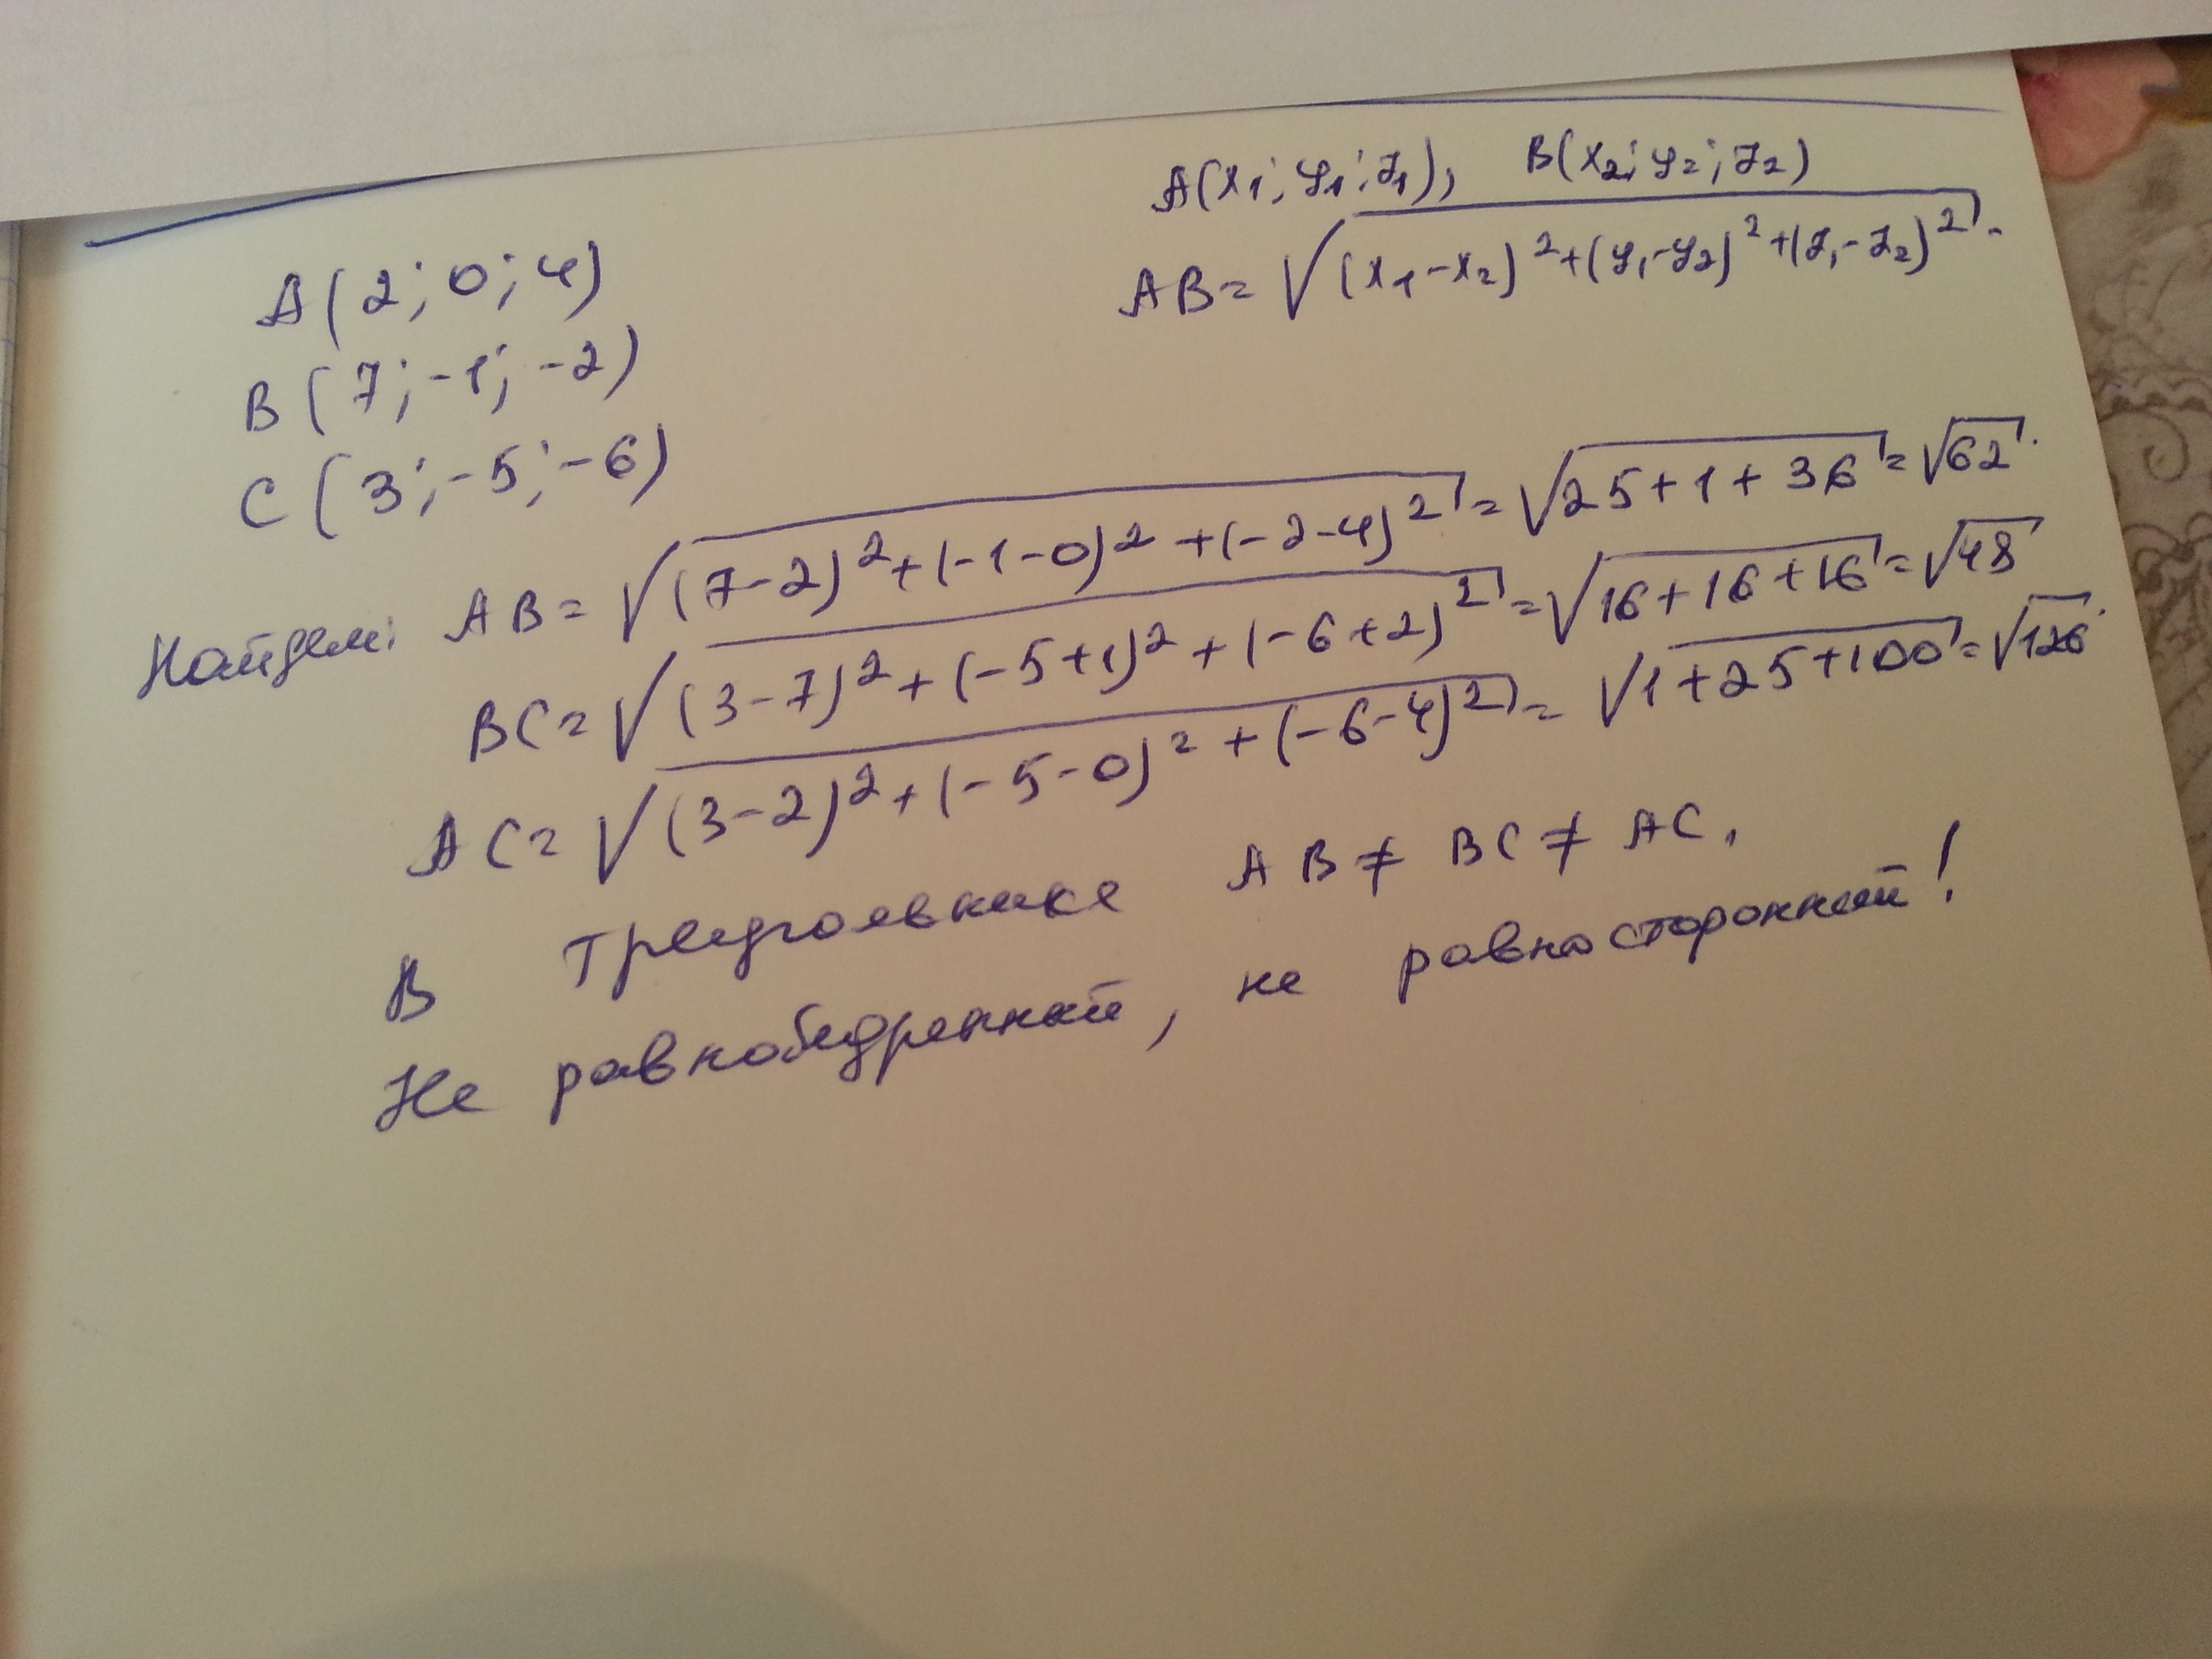 A(x₁; y₁; z₁), B(x₂; y₂; z₂)
AB = √((x₁-x₂)²+(y₁-y₂)²+(z₁-z₂)²).
A(2; 0; 4)
B(7; -1; -2)
C(3; -5; -6)
Найдем: AB = √((7-2)²+(-1-0)²+(-2-4)²) = √(25+1+36) = √62.
BC = √((3-7)²+(-5+1)²+(-6+2)²) = √(16+16+16) = √48
AC = √((3-2)²+(-5-0)²+(-6-4)²) = √(1+25+100) = √126.
В треугольнике AB ≠ BC ≠ AC.
Не равнобедренный, не равносторонний!